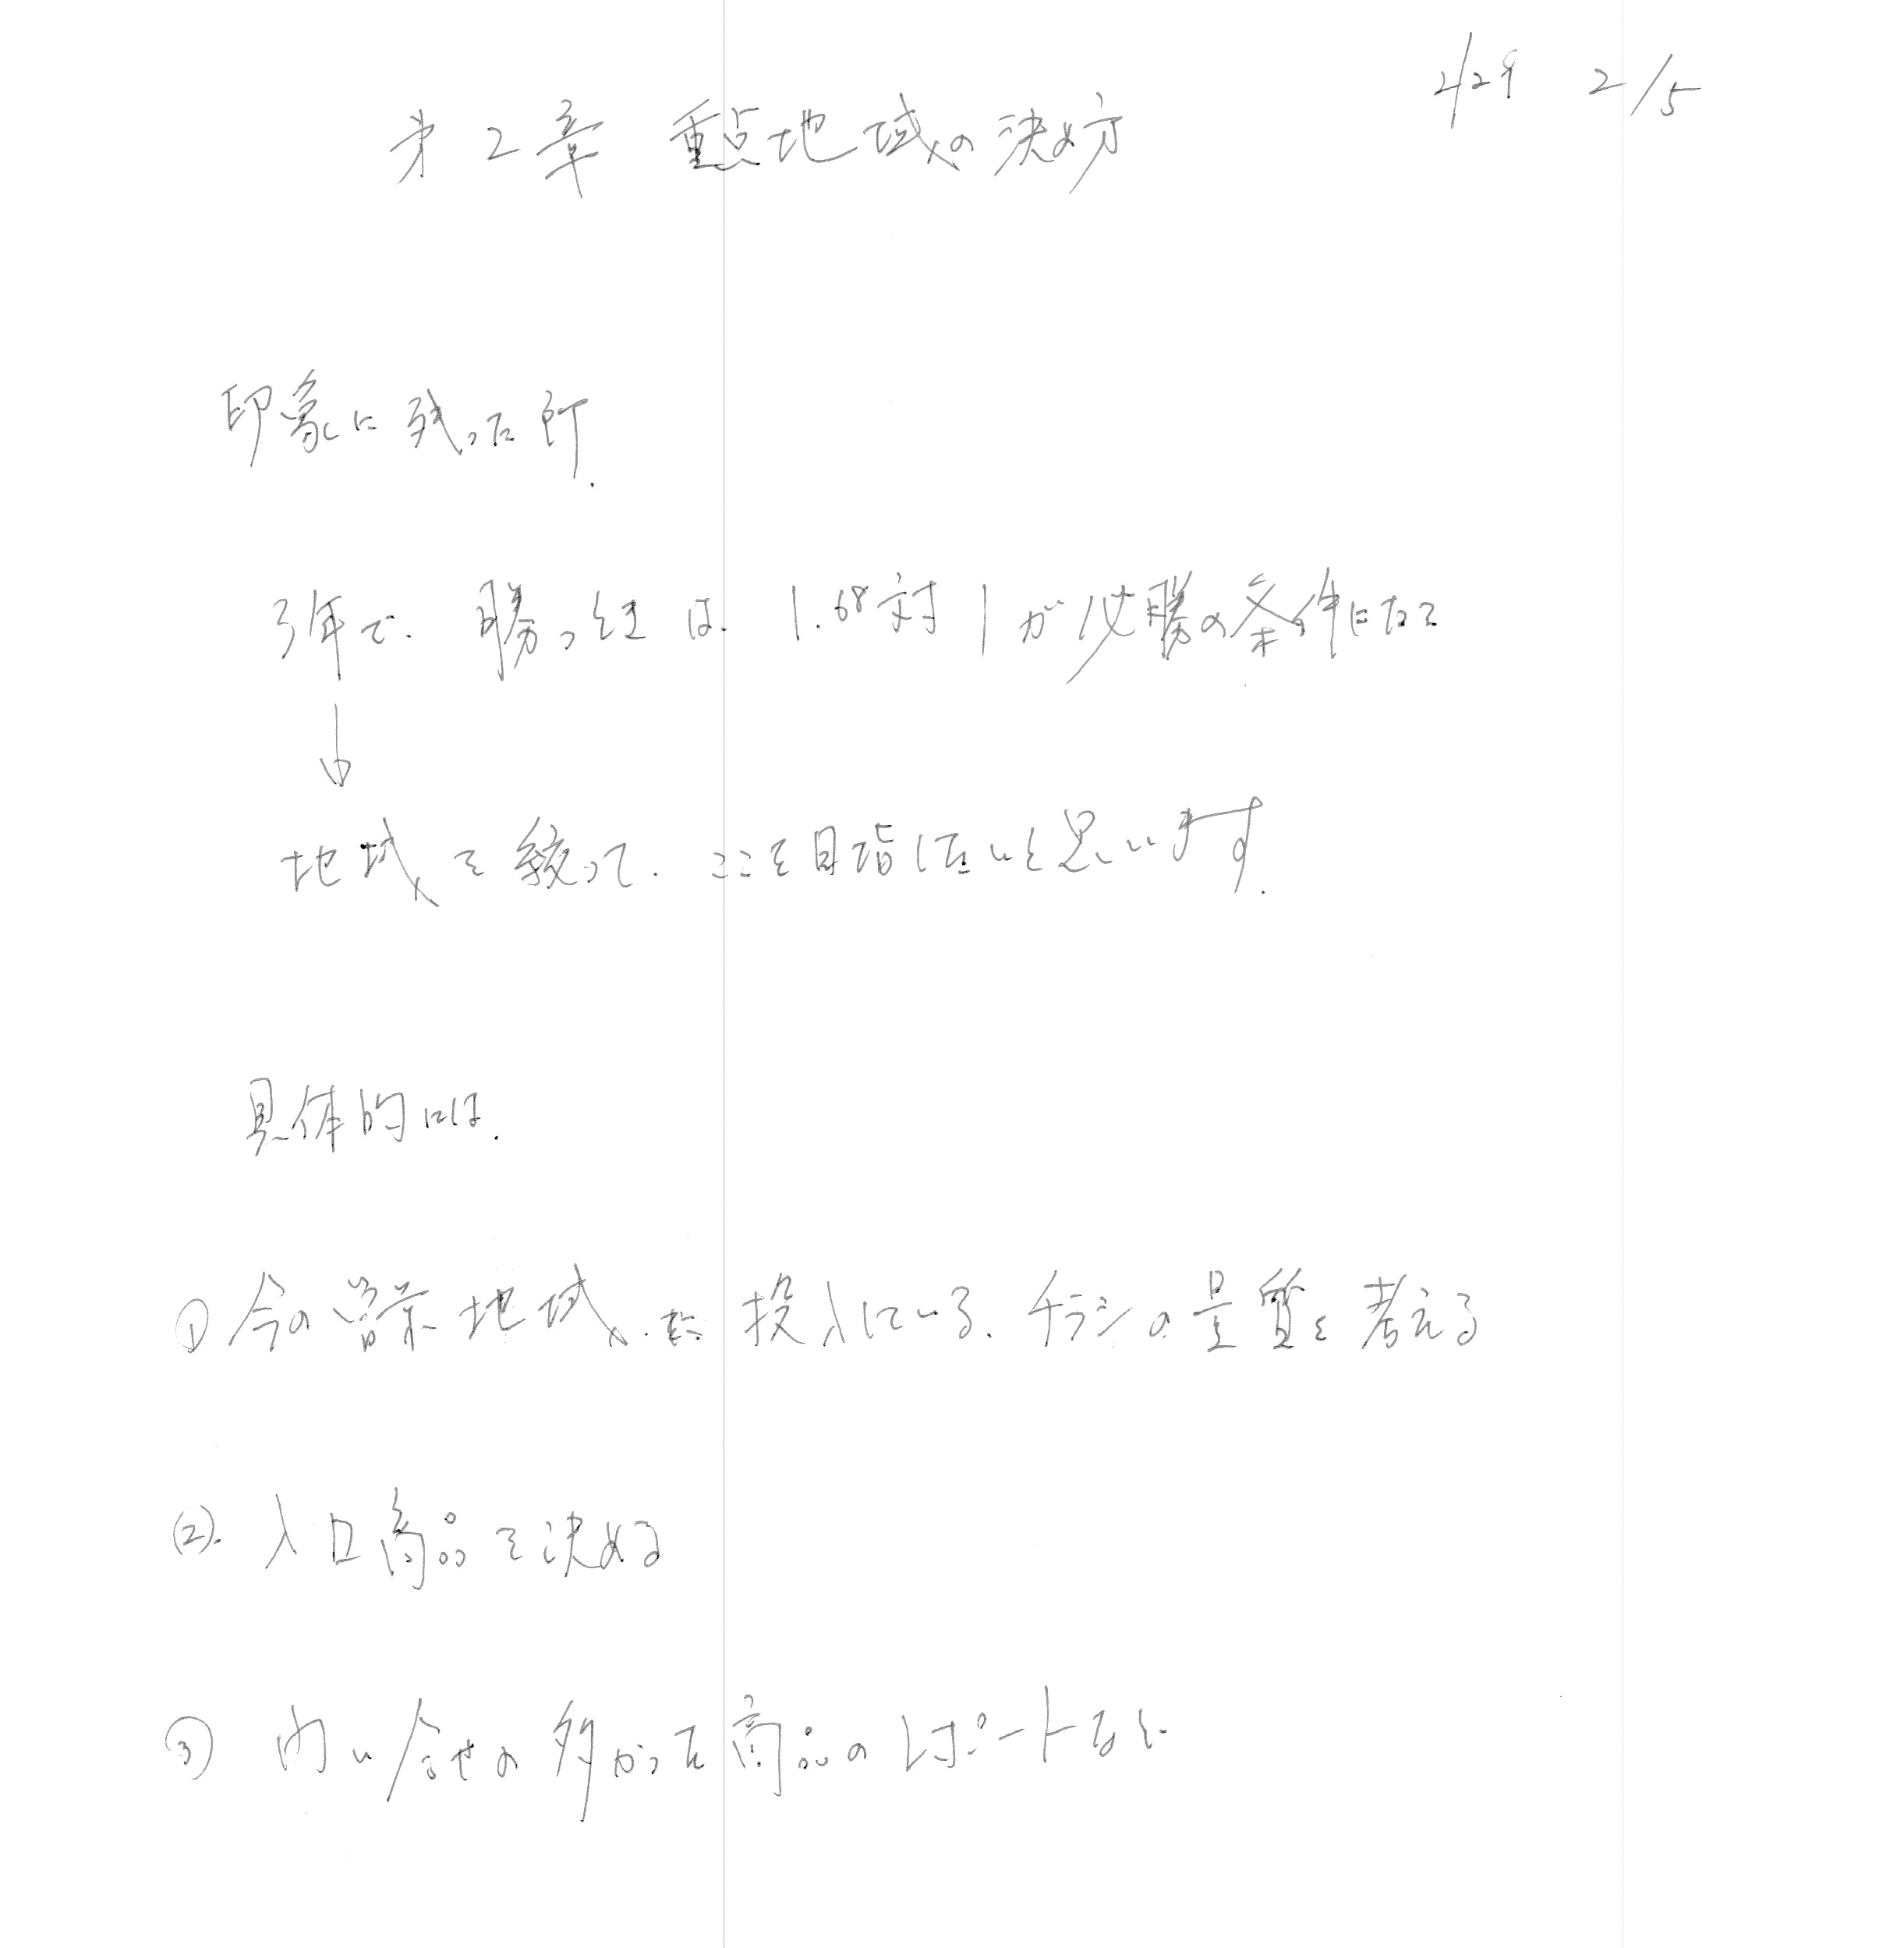 2/29 2/5
第2章 重点地域の決め方
印象に残った所.
3年で. 勝つ には. 1.68対1が必勝の条件になる
↓
地域を絞って. ここを目指したいと思います.
具体的には.
① 今の営業地域. に 投入している、チラシの量質を考える
(2). 入口商品を決める
③ 問い合せの多かった商品のレポートなど